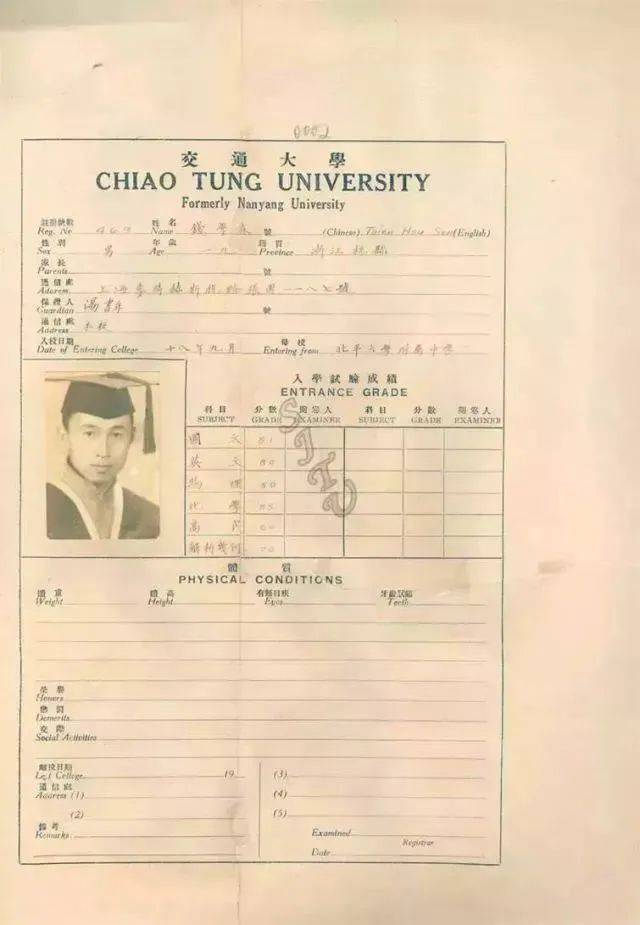 0002
交通大學
CHIAO TUNG UNIVERSITY
Formerly Nanyang University
註冊號數 姓名 號
Reg. No 469 Name 錢學森 (Chinese) Tsien Hsu Sen (English)
性別 男 年歲 一九 籍貫 浙江杭縣
Sex Age Province
家長 號
Parents
通信處 上海
Address 張園一一八七號
保證人 湯書年 號
Guardian
通信處 本校
Address
入校日期 十八年九月 母校 北平大學附屬中學
Date of Entering College Entering from
入學試驗成績
ENTRANCE GRADE
科目 分數 閱卷人 科目 分數 閱卷人
SUBJECT GRADE EXAMINER SUBJECT GRADE EXAMINER
國文
英文
物理
化學
解析幾何
SJTU
體質
PHYSICAL CONDITIONS
體重 體高 有無目疾 牙齒試驗
Weight Height Eyes Teeth
榮譽
Honors
懲罰
Demerits
交際
Social Activities
離校日期
Left College 19 (3)
通信處
Address (1) (4)
(2) (5)
備考
Remarks Examined
Registrar
Date